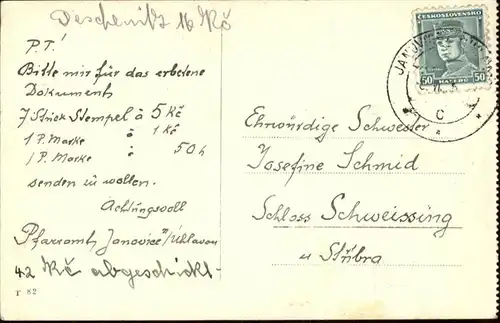 Deschenitz 16 Kč
P.T.
Bitte mir für das erbetene
Dokument
7 Stück Stempel à 5 Kč
1 P. Marke à 1 Kč
1 P. Marke à 50 h
senden zu wollen.
Achtungsvoll
Pfarramt Janovice n/Úhlavou
42 Kč abgeschickt.
T 82
ČESKOSLOVENSKO
50 50
HALÉŘŮ
JANOVICE
C
Ehrwürdige Schwester
Josefine Schmid
Schloss Schweissing
u Stříbra